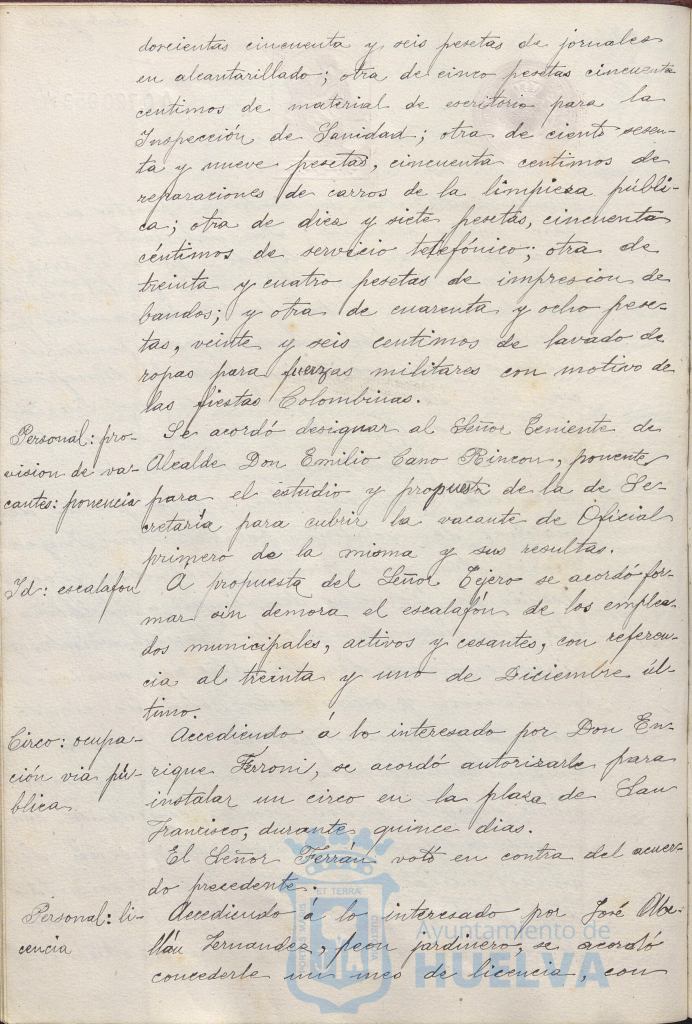 doscientas cincuenta y seis pesetas de jornales
en alcantarillado; otra de cinco pesetas cincuenta
centimos de material de escritorio para la
Inspección de Sanidad; otra de ciento sesen-
ta y nueve pesetas, cincuenta centimos de
reparaciones de carros de la limpieza públi-
ca; otra de diez y siete pesetas, cincuenta
céntimos de servicio telefónico; otra de
treinta y cuatro pesetas de impresion de
bandos; y otra de cuarenta y ocho pese-
tas, veinte y seis centimos de lavado de
ropas para fuerzas militares con motivo de
las fiestas Colombinas.
Personal: pro-
vision de va-
cantes: ponencia
Se acordó designar al Señor Teniente de
Alcalde Don Emilio Cano Rincon, ponente
para el estudio y propuesta de la de Se-
cretaría para cubrir la vacante de Oficial
primero de la misma y sus resultas.
Id: escalafon
A propuesta del Señor Tejero se acordó for-
mar sin demora el escalafón de los emplea-
dos municipales, activos y cesantes, con referen-
cia al treinta y uno de Diciembre úl-
timo.
Circo: ocupa-
ción via pú-
blica
Accediendo á lo interesado por Don En-
rique Ferroni, se acordó autorizarle para
instalar un circo en la plaza de San
Francisco, durante quince dias.
El Señor Ferrán votó en contra del acuer-
do precedente.
Personal: li-
cencia
Accediendo á lo interesado por José Abe-
llán Fernandez, peon jardinero, se acordó
concederle un mes de licencia, con
ET TERRA
Ayuntamiento de
HUELVA